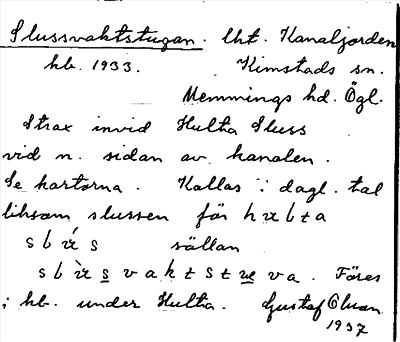 Slussvaktstugan. lht. Kanaljorden
hb. 1933. Kimstads sn.
Memmings hd. Ögl.
Strax invid Hulta Sluss
vid n. sidan av kanalen.
Se kartorna. Kallas i dagl. tal
liksom slussen för
sällan
Föres
i hb. under Hulta. Gustaf
1937